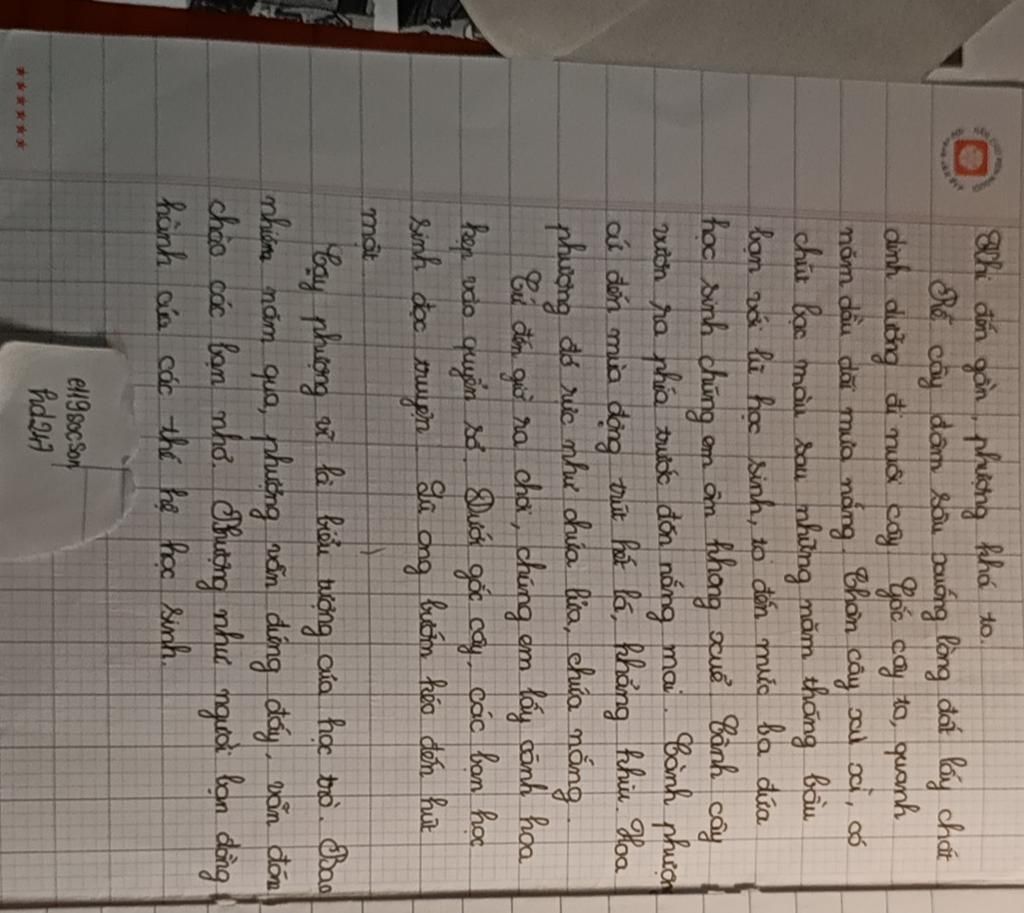 Khi đến gần, phượng khá to.
Rễ cây đâm sâu xuống lòng đất lấy chất
dinh dưỡng đi nuôi cây. Gốc cây to, quanh
năm dầu dãi mưa nắng. Thân cây xù xì, có
chút bạc màu sau những năm tháng bầu
bạn với lũ học sinh, to đến mức ba đứa
học sinh chúng em ôm không xuể. Cành cây
vươn ra phía trước đón nắng mai. Cành phượn
cứ đến mùa đông trút hết lá, khẳng khiu. Hoa
phượng đỏ rực như chứa lửa, chứa nắng.
Cứ đến giờ ra chơi, chúng em lấy cánh hoa
kẹp vào quyển sổ. Dưới gốc cây, các bạn học
sinh đọc truyện. Lũ ong bướm kéo đến hút
mật.
Cây phượng vĩ là biểu tượng của học trò. Bao
nhiêu năm qua, phượng vẫn đứng đấy, vẫn đón
chào các bạn nhỏ. Phượng như người bạn đồng
hành của các thế hệ học sinh.
e119socson
hd247